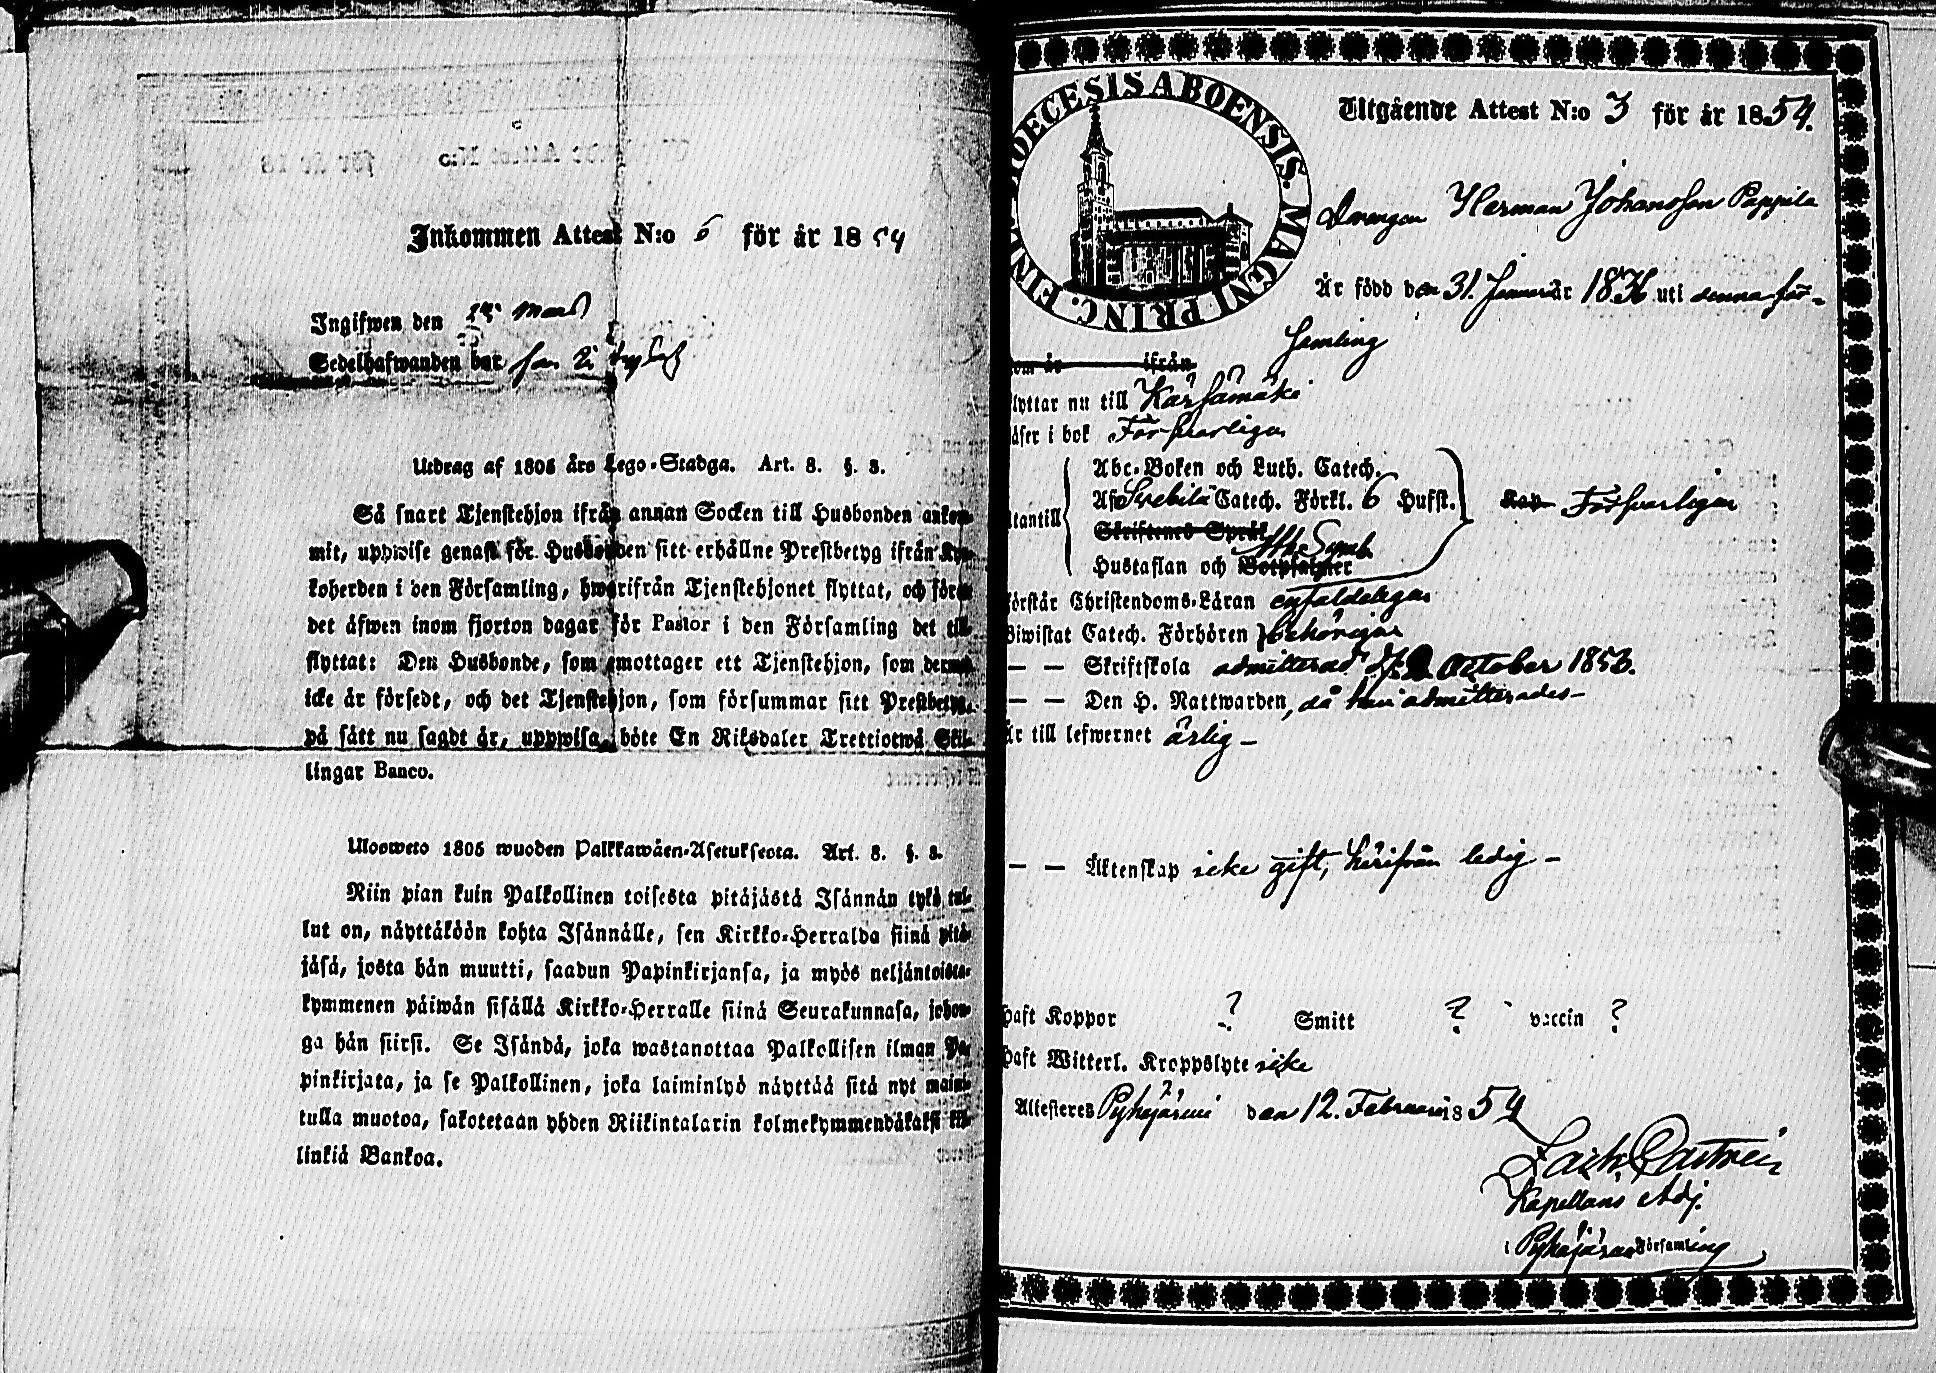 Inkommen Attest N:o 6 för år 1854
Ingifwen den 22 Mars
Sedelhafwanden bar
Utdrag af 1805 års Lego-Stadga. Art. 8. §. 8.
Så snart Tjenstehjon ifrån annan Socken till Husbonden ankom-
mit, uppwise genast för Husbonden sitt erhållne Prestbetyg ifrån Kyr-
koherden i den Församling, hwarifrån Tjenstehjonet flyttat, och förete
det äfwen inom fjorton dagar för Pastor i den Församling det till-
flyttat: Den Husbonde, som emottager ett Tjenstehjon, som dermed
icke är försedt, och det Tjenstehjon, som försummar sitt Prestbetyg,
på sätt nu sagdt är, uppwisa, böte En Riksdaler Trettiotwå Skil-
lingar Banco.
Uloswето 1805 wuoden Palkkawäen-Asetuksesta. Art. 8. §. 8.
Niin pian kuin Palkollinen toisesta pitäjästä Isännän tykö tul-
lut on, näyttäköön kohta Isännälle, sen Kirkko-Herralda siinä pitä-
jäsä, josta hän muutti, saadun Papinkirjansa, ja myös neljäntoista-
kymmenen päiwän sisällä Kirkko-Herralle siinä Seurakunnasa, johon-
ga hän siirsi. Se Isändä, joka wastanottaa Palkollisen ilman Pa-
pinkirjata, ja se Palkollinen, joka laiminlyö näyttää sitä nyt maini-
tulla muotoa, sakotetaan yhden Riikintalarin kolmekymmendäkaksi kil-
linkiä Bankoa.
DIOECESIS ABOENSIS. MAGNI PRINC. FINL
Utgående Attest N:o 3 för år 1854.
Drengen Herman Johansson Pappila
Är född den 31. Januari år 1836 uti denna för-
samling
om år ifrån
lyttar nu till Kärsämäki
äser i bok Försvarligen
Abc-Boken och Luth. Catech.
Af Svebilii Catech. Förkl. 6 Hufst.
tantill Försvarligen
Skriftenes Språk
Ath. Symb.
Hustaflan och Botpsalmer
örstår Christendoms-Läran enfaldeligen
Biwistat Catech. Förhören behörigen
— — Skriftskola admitterad d. 2 October 1853.
— — Den H. Nattwarden, då han admitterades —
Är till lefwernet ärlig —
— — Äktenskap icke gift, härifrån ledig —
haft Koppor ? Smitt ? vaccin ?
haft Witterl. Kroppslyte icke
Attesteres Pyhäjärvi den 12. Februarii 1854
Zach. Castrén
Kapellans Adj.
i Pyhäjärvi Församling